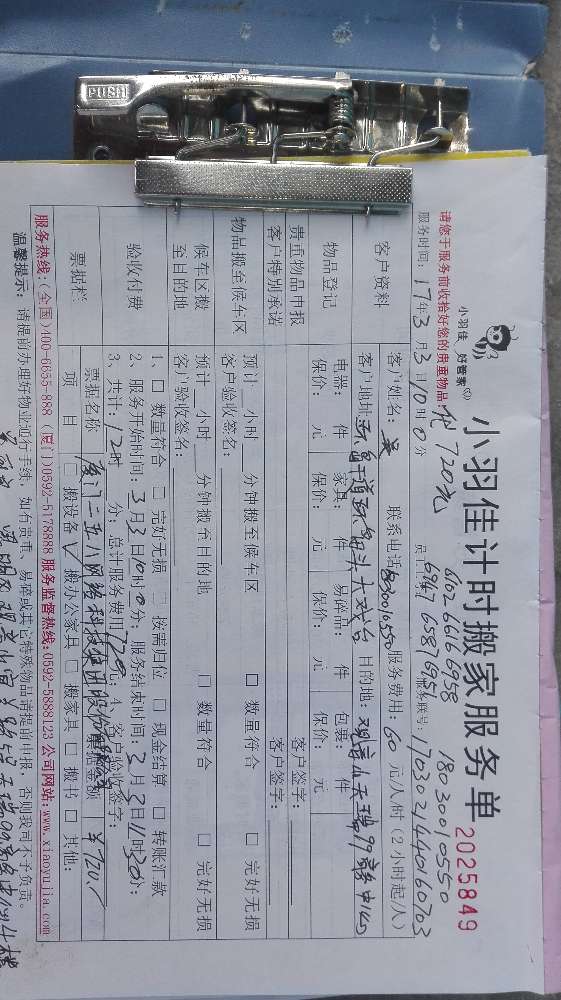 PUSH
小羽佳 好管家
小羽佳计时搬家服务单
2025849
请您于服务前收拾好您的贵重物品
720元
6102 6616 6958
18030010550
服务时间：17年3月3日10时0分
6947 6587 6951
1703021440160703
客户资料
客户姓名：吴
联系电话
服务费用：60元/人/时（2小时起/人）
客户地址
目的地：观音山天瑞99商务中心
物品登记
电器： 件 家具： 件 易碎品： 件 包裹： 件
保价： 元 保价： 元 保价： 元 保价： 元
贵重物品申报
客户签字：
客户特别承诺
客户签字：
物品搬至候车区
预计 小时 分钟搬至候车区
□ 数量符合 □ 完好无损
客户验收签名：
候车区搬至目的地
预计 小时 分钟搬至目的地
□ 数量符合 □ 完好无损
客户验收签名：
验收付费
1、□ 数量符合 □ 完好无损 □ 按需归位 □ 现金结算 □ 转账汇款
2、服务开始时间：3月3日10时0分；服务结束时间：3月3日11时30分；
3、共计：12时 分；总计服务费用720元；4、客户验收签字：
票据栏
票据名称
厦门二五八网络科技集团股份
票据金额
¥720
项目
□ 搬设备 □ 搬办公家具 □ 搬家具 □ 搬书 □ 其他：
服务热线：(全国)400-6655-888 (厦门)0592-5178888 服务监督热线：0592-5888123 公司网站：www.xiaoyujia.com
温馨提示：请提前办理好物业通行手续，如有贵重、易碎或其它特殊物品请提前申报，否则我司不予负责。